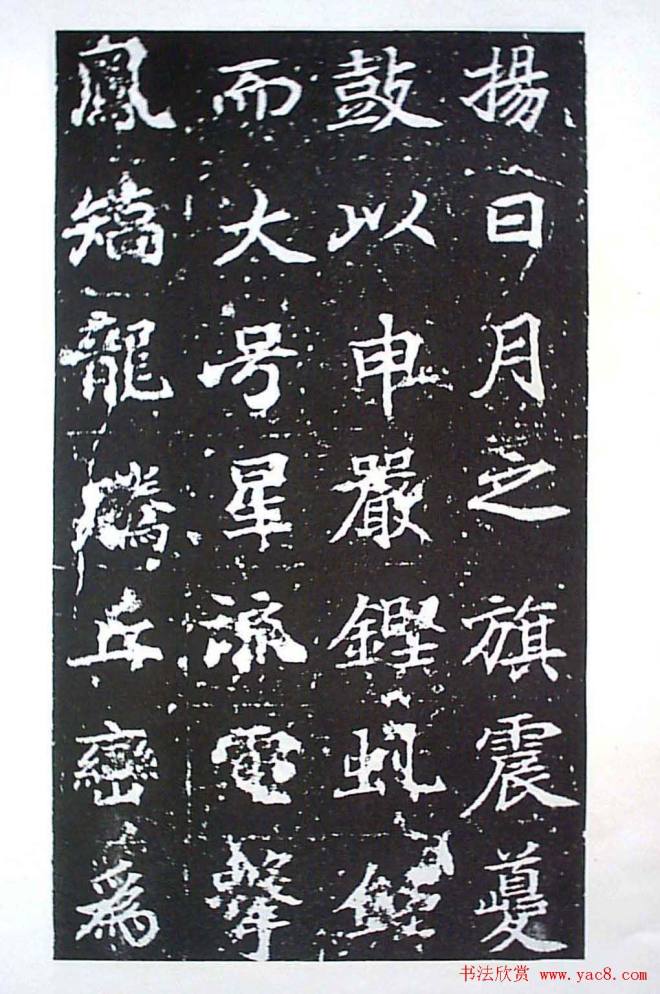 揚日月之旗震夔
鼓以申嚴鏗虬
而大号星流電掣
鳳矯龍騰丘巒爲
书法欣赏 www.yac8.com